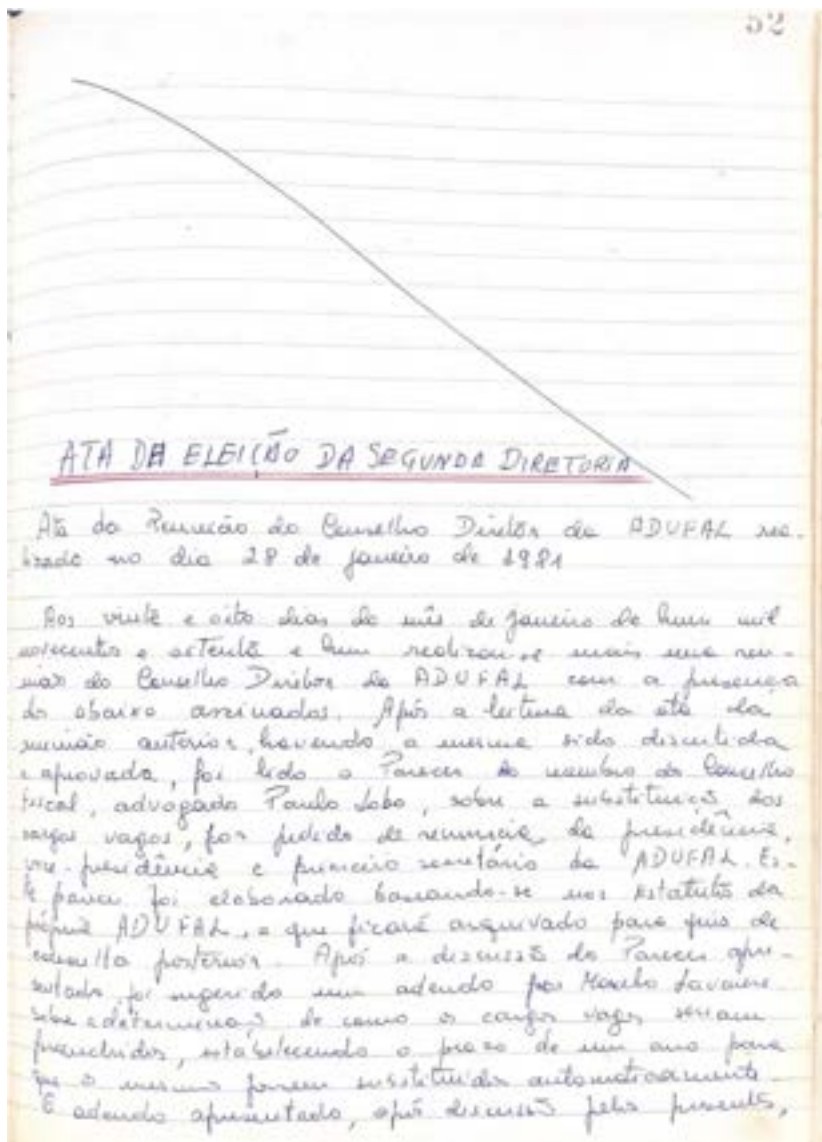 52
ATA DA ELEIÇÃO DA SEGUNDA DIRETORIA
Ata da Reunião do Conselho Diretor da ADUFAL rea-
lizada no dia 28 de janeiro de 1981
Aos vinte e oito dias do mês de janeiro de hum mil
novecentos e oitenta e hum realizou-se mais uma reu-
nião do Conselho Diretor da ADUFAL com a presença
do abaixo assinados. Após a leitura da ata da
reunião anterior, havendo a mesma sido discutida
e aprovada, foi lido o Parecer do membro do Conselho
fiscal, advogado Paulo Lobo, sobre a substituição dos
cargos vagos, por pedido de renuncia, da presidência,
vice-presidência e primeiro secretário da ADUFAL. Es-
te parecer foi elaborado baseando-se nos estatutos da
própria ADUFAL, e que ficará arquivado para fins de
consulta posterior. Após a discussão do Parecer apre-
sentado, foi sugerido um adendo por Marcelo Lavenère
sobre a determinação de como os cargos vagos seriam
preenchidos, estabelecendo o prazo de um ano para
que o mesmo fossem substituidos automaticamente.
O adendo apresentado, após discussão pelos presentes,